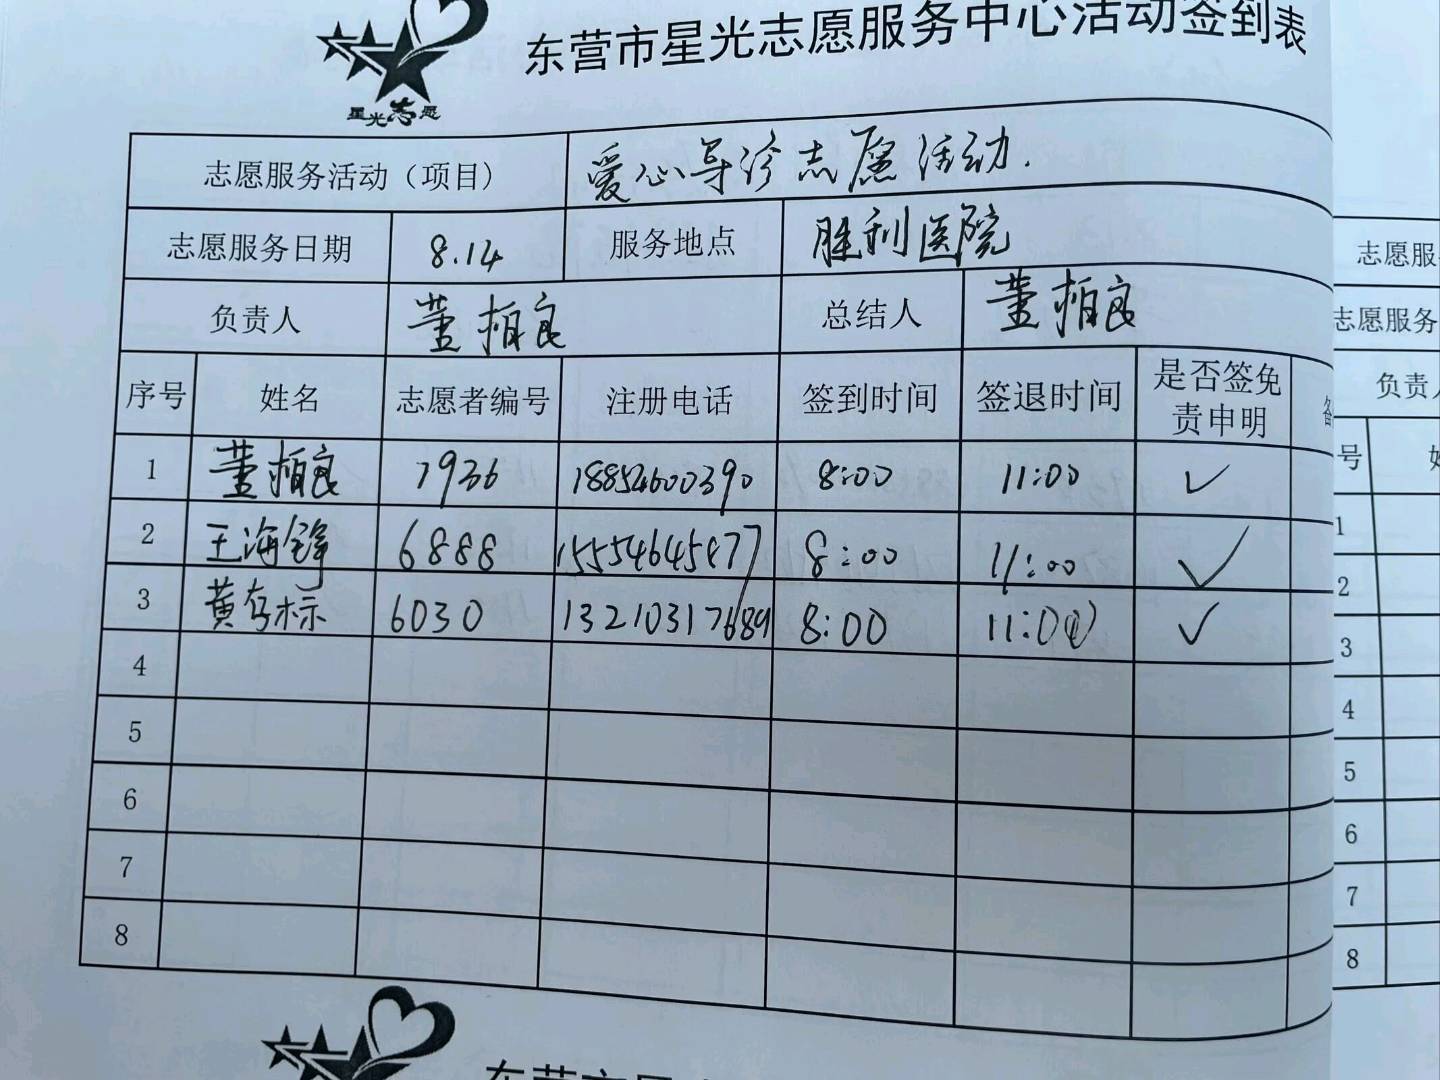 东营市星光志愿服务中心活动签到表
星光志愿
志愿服务活动（项目） 爱心导诊志愿活动.
志愿服务日期 8.14 服务地点 胜利医院
负责人 董柏良 总结人 董柏良
序号 姓名 志愿者编号 注册电话 签到时间 签退时间 是否签免责申明
1 董柏良 7936 18854600390 8:00 11:00 ✓
2 王海锋 6888 8:00 11:00 ✓
3 黄存标 6030 13210317689 8:00 11:00 ✓
4
5
6
7
8
志愿服
志愿服务
负责
号
1
2
3
4
5
6
7
8